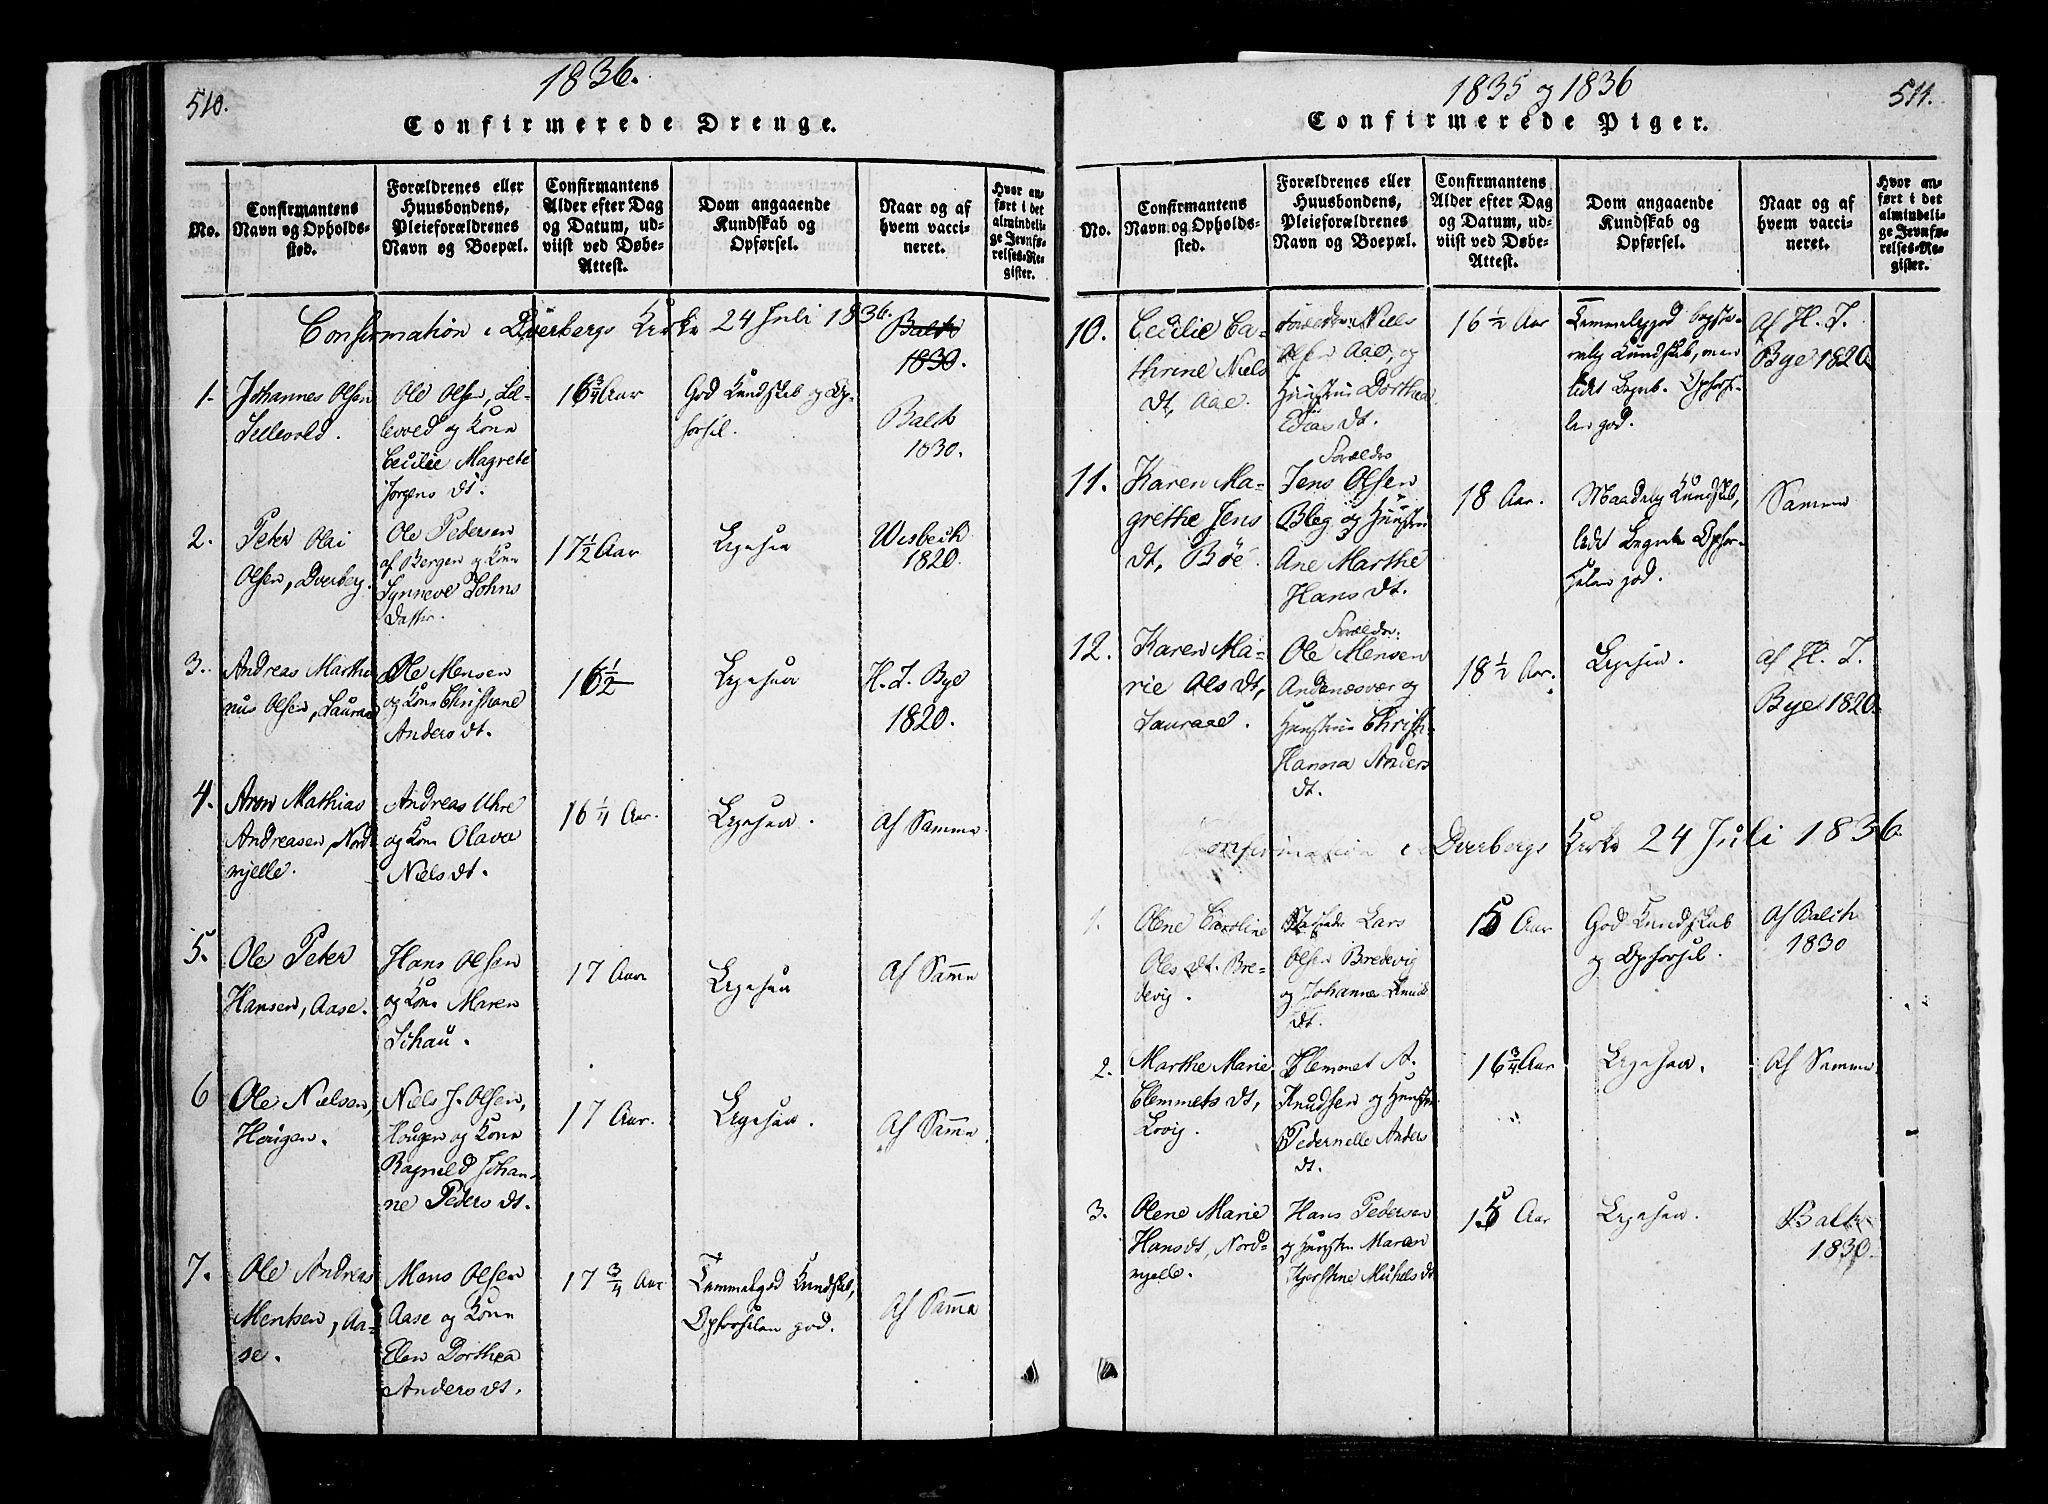 510.
1836.
Confirmerede Drenge.
No.
Confirmantens
Navn og Opholds-
sted.
Forældrenes eller
Huusbondens,
Pleieforældrenes
Navn og Boepæl.
Confirmantens
Alder efter Dag
og Datum, ud-
viist ved Døbe-
Attest.
Dom angaaende
Kundskab og
Opførsel.
Naar og af
hvem vacci-
neret.
Hvor an-
ført i det
almindeli-
ge Jevnfø-
relses-Re-
gister.
Confirmation i Dverbergs Kirke 24 Juli 1836.
Balch
1830.
1.
Johannes Olsen
Ole Olsen, Lil-
leved og Kone
Cecilie Magrete
Jørgens dt.
16 3/4 Aar
God Kundskab og Op-
førsel.
Balch
1830.
2.
Peter Olai
Olsen, Dverberg.
Ole Pedersen
af Bergen og Kone
Synneve Johns
Datter.
17 1/2 Aar
Ligesaa
Wisbech
1820.
3.
Andreas Marthi
nus Olsen, Sauraae
Ole Mensen
og Kone Christiane
Anders dt.
16 1/2
Ligesaa
H. J. Bye
1820.
4.
Aron Mathias
Andreasen, Nord
mjelle.
Andreas Uhre
og Kone Olava
Niels dt.
16 1/4 Aar.
Ligesaa.
Af Samme
5.
Ole Peter
Hansen, Aase.
Hans Olsen
og Kone Maren
Schau.
17 Aar
Ligesaa
Af Samme
6
Ole Nielsen,
Hougen.
Niels J. Olsen,
Hougen og Kone
Ragnild Johan-
ne Peders dt.
17 Aar.
Ligesaa.
Af Samme
7.
Ole Andreas
Mentsen, Aa-
se.
Mons Olsen
Aase og Kone
Elen Dorthea
Anders dt.
17 3/4 Aar
Temmelgod Kundskab,
Opførselen god.
Af Samme
1835 og 1836
511.
Confirmerede Piger.
No.
Confirmantens
Navn og Opholds-
sted.
Forældrenes eller
Huusbondens,
Pleieforældrenes
Navn og Boepæl.
Confirmantens
Alder efter Dag
og Datum, ud-
viist ved Døbe-
Attest.
Dom angaaende
Kundskab og
Opførsel.
Naar og af
hvem vacci-
neret.
Hvor an-
ført i det
almindeli-
ge Jevnfø-
relses-Re-
gister.
10.
Cecilie Ca-
thrine Niels
dt, Aae.
Forældre: Niels
Olsen Aae, og
Hustrue Dorthea
Elias dt.
16 1/2 Aar
Temmeliggod
Kundskab, men
lidt Begreb. Opførse-
len god.
Af H. J.
Bye 1820.
11.
Karen Ma-
grethe Jens
dt, Bøe.
Forældre
Jens Olsen
Bleg og Hustrue
Ane Marthe
Hans dt.
18 Aar.
Maadelig Kundskab,
lidt Begreb Opfør-
selen god.
Samme
12.
Karen Ma-
rie Ols dt,
Sauraae.
Forældre:
Ole Mensen
Andenæsvær og
Hustrue Christi-
Hanna Anders
dt.
18 1/2 Aar.
Ligesaa.
af H. J.
Bye 1820.
Confirmation i Dverbergs Kirke 24 Juli 1836.
1.
Olene Caroline
Oles dt. Bre-
devig.
Lars
Olsen Bredevig
og Johanne Knuds
dt.
15 Aar
God Kundskab
og Opførsel.
Af Balch
1830
2.
Marthe Marie
Clemmets dt,
Lovig.
Klemmet A.
Knudsen og Hustrue
Pedernelle Anders
dt.
16 3/4 Aar
Ligesaa.
Af Samme
3.
Olene Marie
Hansdt, Nord-
mjelle.
Hans Pedersen
og Hustru Maren
Kjerstine Mikels dt
15 Aar
Ligesaa.
Balch
1830.